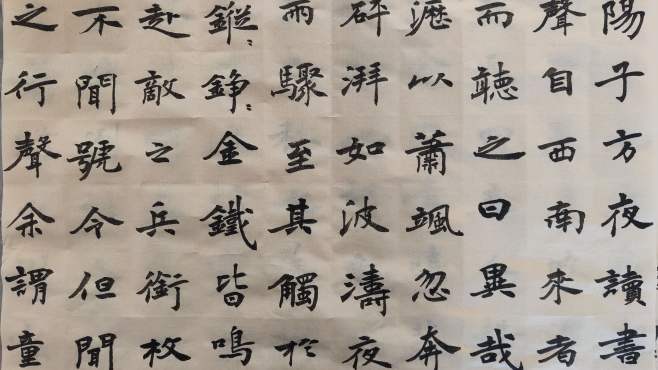 陽子方夜讀書
聲自西南來者
而聽之曰異哉
瀝以蕭颯忽奔
砰湃如波濤夜
雨驟至其觸於
鏦〻錚〻金鐵皆鳴
赴敵之兵銜枚
不聞號令但聞
之行聲余謂童